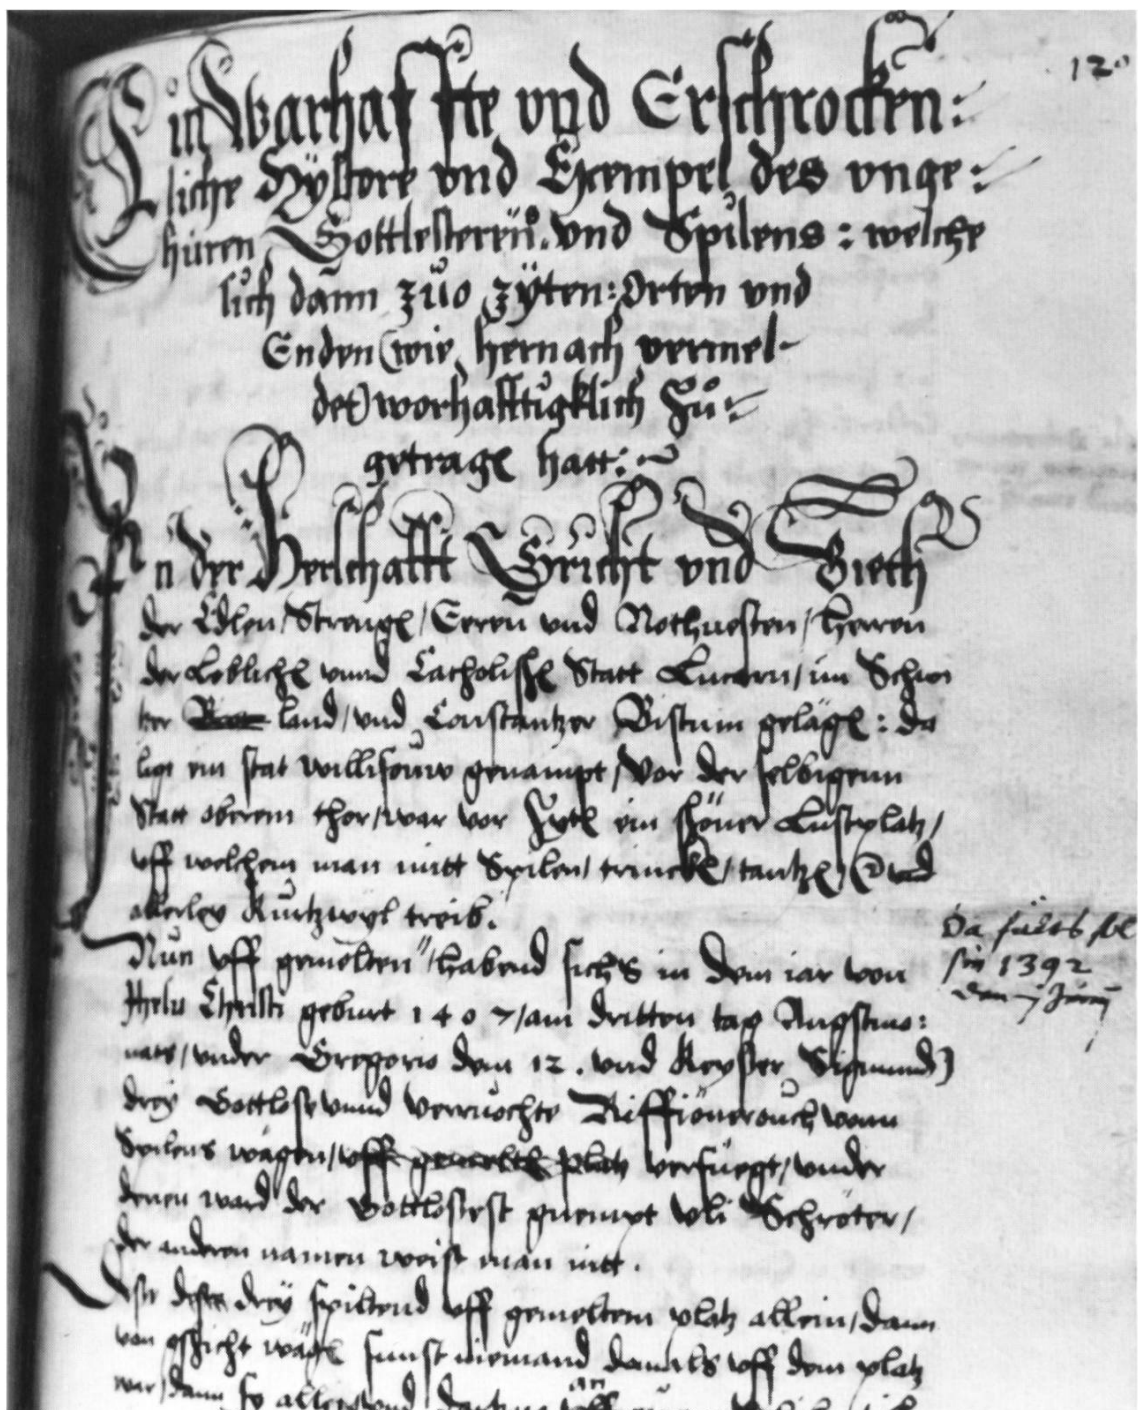 120
Ein Warhaffte vnd Erschrocken:
liche Hystore vnd Exempel des vnge:
hüren Gottlesterens vnd Spilens: welche
sich dann zuo zÿten: Orten vnd
Enden (wie hernach vermel-
det) worhafftigklich Zů:
getragen hatt:
In der Herschafft Gricht vnd Bieth
der Edlen / Strengen / Eeren vnd Nothuesten / herren
der Loblichen vnnd Catholischen Statt Lucern / im Schwi
tzer land / vnd Constantzer Bistum gelägen: da
ligt ein stat willisouw genampt / Vor der selbigenn
Statt oberem thor / war vor Zyten ein schöner Lustplatz /
vff welchem man mitt Spilen / trincken / tantzen vnd
allerley kurtzwyl treib.
Nun vff gemelten habend sichs in dem iar von
Jhesu Christi geburt 1407 / am dritten tag Augstmo:
nats / vnder Gregorio dem 12. vnd Keyser Sigmund
Da sälts sol
sin 1392
den Junij
drey Gottlose vnnd verruochte Riffiöner ouch vonn
Spilens wägen / vff gemelten platz verfüegt / vnder
denen ward der Gottlosest gnempt Vli Schröter /
der anderen namen weist man nitt.
Als diese drey spiltend vff gemeltem platz allein / dann
von gschicht wägen sunst niemand damals vff dem platz
war / dann sy